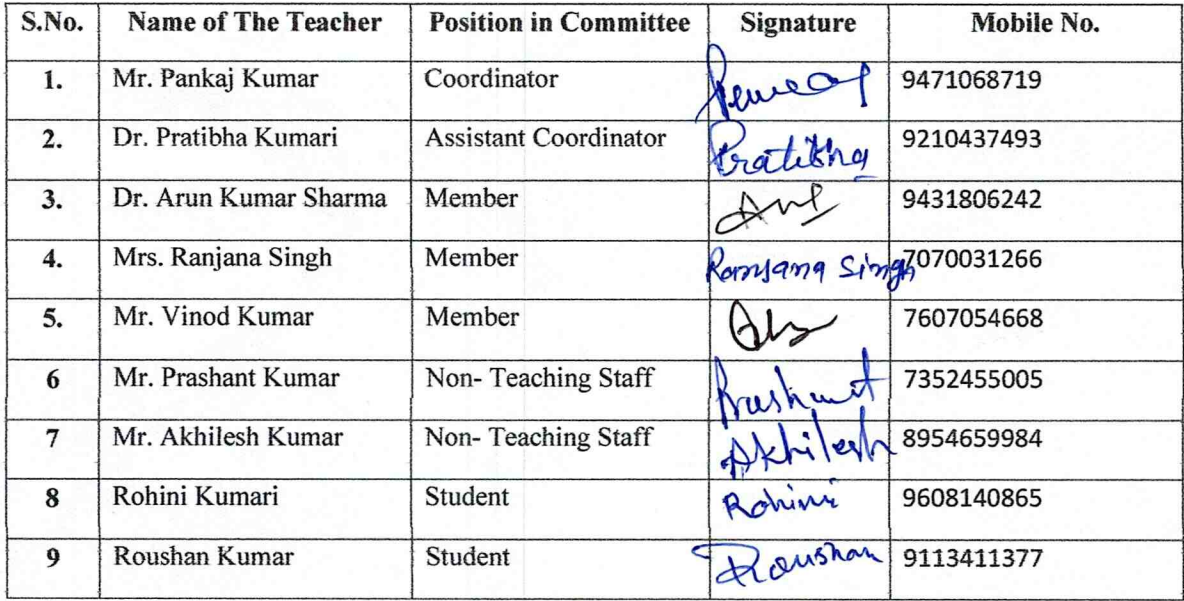 S.No. Name of The Teacher Position in Committee Signature Mobile No.
1. Mr. Pankaj Kumar Coordinator 9471068719
2. Dr. Pratibha Kumari Assistant Coordinator Pratibha 9210437493
3. Dr. Arun Kumar Sharma Member 9431806242
4. Mrs. Ranjana Singh Member Ranjana Singh 7070031266
5. Mr. Vinod Kumar Member 7607054668
6 Mr. Prashant Kumar Non- Teaching Staff Prashant 7352455005
7 Mr. Akhilesh Kumar Non- Teaching Staff Akhilesh 8954659984
8 Rohini Kumari Student Rohini 9608140865
9 Roushan Kumar Student Roushan 9113411377